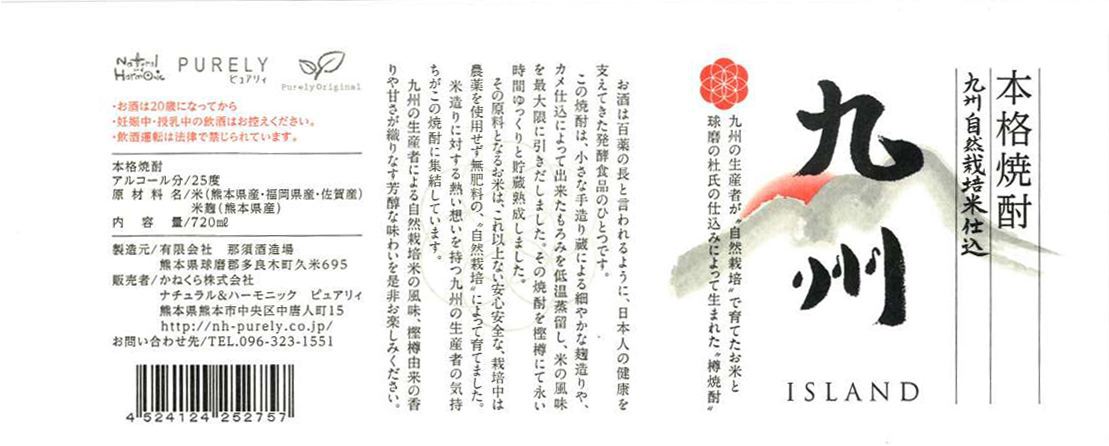 本格焼酎
九州自然栽培米仕込
九州
ISLAND
九州の生産者が〝自然栽培〟で育てたお米と
球磨の杜氏の仕込みによって生まれた〝樽焼酎〟
お酒は百薬の長と言われるように、日本人の健康を
支えてきた発酵食品のひとつです。
この焼酎は、小さな手造り蔵による細やかな麹造りや、
カメ仕込によって出来たもろみを低温蒸留し、米の風味
を最大限に引きだしました。その焼酎を樫樽にて永い
時間ゆっくりと貯蔵熟成しました。
その原料となるお米は、これ以上ない安心安全な、栽培中は
農薬を使用せず無肥料の、〝自然栽培〟によって育てました。
米造りに対する熱い想いを持つ九州の生産者の気持
ちがこの焼酎に集結しています。
九州の生産者による自然栽培米の風味、樫樽由来の香
りや甘さが織りなす芳醇な味わいを是非お楽しみください。
Natural
and
Harmonic
PURELY
ピュアリィ
PurelyOriginal
・お酒は20歳になってから
・妊娠中・授乳中の飲酒はお控えください。
・飲酒運転は法律で禁じられています。
本格焼酎
アルコール分/25度
原材料名/米(熊本県産・福岡県産・佐賀産)
米麹(熊本県産)
内容量/720㎖
製造元/有限会社 那須酒造場
熊本県球磨郡多良木町久米695
販売者/かねくら株式会社
ナチュラル&ハーモニック ピュアリィ
熊本県熊本市中央区中唐人町15
http://nh-purely.co.jp/
お問い合わせ先/TEL.096-323-1551
4 524124 252757